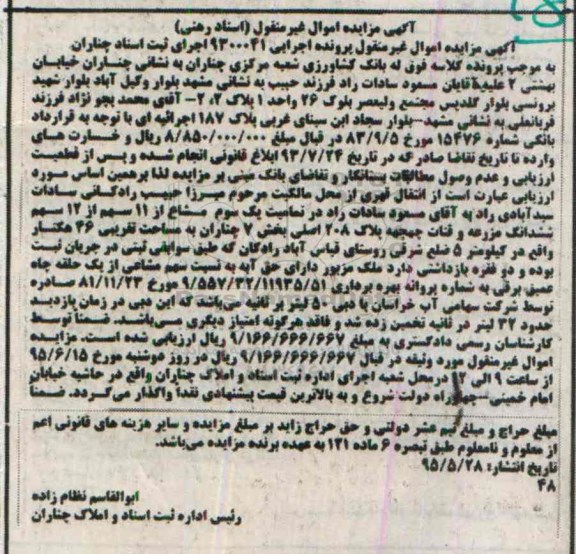 آگهی مزایده اموال غیرمنقول (اسناد رهنی)
آگهی مزایده اموال غیرمنقول پرونده اجرایی ۹۳۰۰۰۴۱ اجرای ثبت اسناد چناران
به موجب پرونده کلاسه فوق له بانک کشاورزی شعبه مرکزی چناران به نشانی چناران خیابان
بهشتی ۲ علیه آقایان مسعود سادات راد فرزند حبیب به نشانی مشهد بلوار وکیل آباد بلوار شهید
برونسی بلوار گلدیس مجتمع ولیعصر بلوک ۲۶ واحد ۱ پلاک ۲، ۲- آقای محمد بجو نژاد فرزند
قربانعلی به نشانی مشهد-بلوار سجاد ابن سینای غربی پلاک ۱۸۷ اجرائیه ای با توجه به قرارداد
بانکی شماره ۱۵۴۷۶ مورخ ۸۳/۹/۵ در قبال مبلغ ۸/۸۵۰/۰۰۰/۰۰۰ ریال و خسارت های
وارده تا تاریخ تقاضا صادر که در تاریخ ۹۳/۷/۲۴ ابلاغ قانونی انجام شده و پس از قطعیت
ارزیابی و عدم وصول مطالبات بستانکار و تقاضای بانک مبنی بر مزایده لذا برهمین اساس مورد
ارزیابی عبارت است از انتقال قهری از محل مالکیت مرحوم میرزا حبیب رادکانی سادات
سیدآبادی راد به آقای مسعود سادات راد در تمامیت یک سوم مشاع از ۱۱ سهم از ۱۲ سهم
ششدانگ مزرعه و قنات جمجمه پلاک ۲۰۸ اصلی بخش ۷ چناران به مساحت تقریبی ۴۶ هکتار
واقع در کیلومتر ۵ ضلع شرقی روستای قیاس آباد رادکان که طبق سوابق ثبتی در جریان ثبت
بوده و دو فقره بازداشتی دارد ملک مزبور دارای حق آبه به نسبت سهم مشاعی از یک حلقه چاه
عمیق برقی به شماره پروانه بهره برداری ۹/۵۵۷/۳۲/۱۱۹۳۵/۵۱ مورخ ۸۱/۱۱/۲۳ صادره
توسط شرکت سهامی آب خراسان با دبی ۵۰ لیتر بر ثانیه می‌باشد که این دبی در زمان بازدید
حدود ۳۲ لیتر در ثانیه تخمین زده شد و فاقد هرگونه امتیاز دیگری می‌باشد. ضمنا توسط
کارشناسان رسمی دادگستری به مبلغ ۹/۱۶۶/۶۶۶/۶۶۷ ریال ارزیابی شده است. مزایده
اموال غیرمنقول مورد وثیقه در قبال ۹/۱۶۶/۶۶۶/۶۶۷ ریال در روز دوشنبه مورخ ۹۵/۶/۱۵
از ساعت ۹ الی در محل شعبه اجرای اداره ثبت اسناد و املاک چناران واقع در حاشیه خیابان
امام خمینی-چهارراه دولت شروع و به بالاترین قیمت پیشنهادی نقداً واگذار می‌گردد. ضمناً
مبلغ حراج و مبلغ نیم عشر دولتی و حق حراج زاید بر مبلغ مزایده و سایر هزینه های قانونی اعم
از معلوم و نامعلوم طبق تبصره ۶ ماده ۱۲۱ به عهده برنده مزایده می‌باشد.
تاریخ انتشار: ۹۵/۵/۲۸
۴۸
ابوالقاسم نظام زاده
رئیس اداره ثبت اسناد و املاک چناران